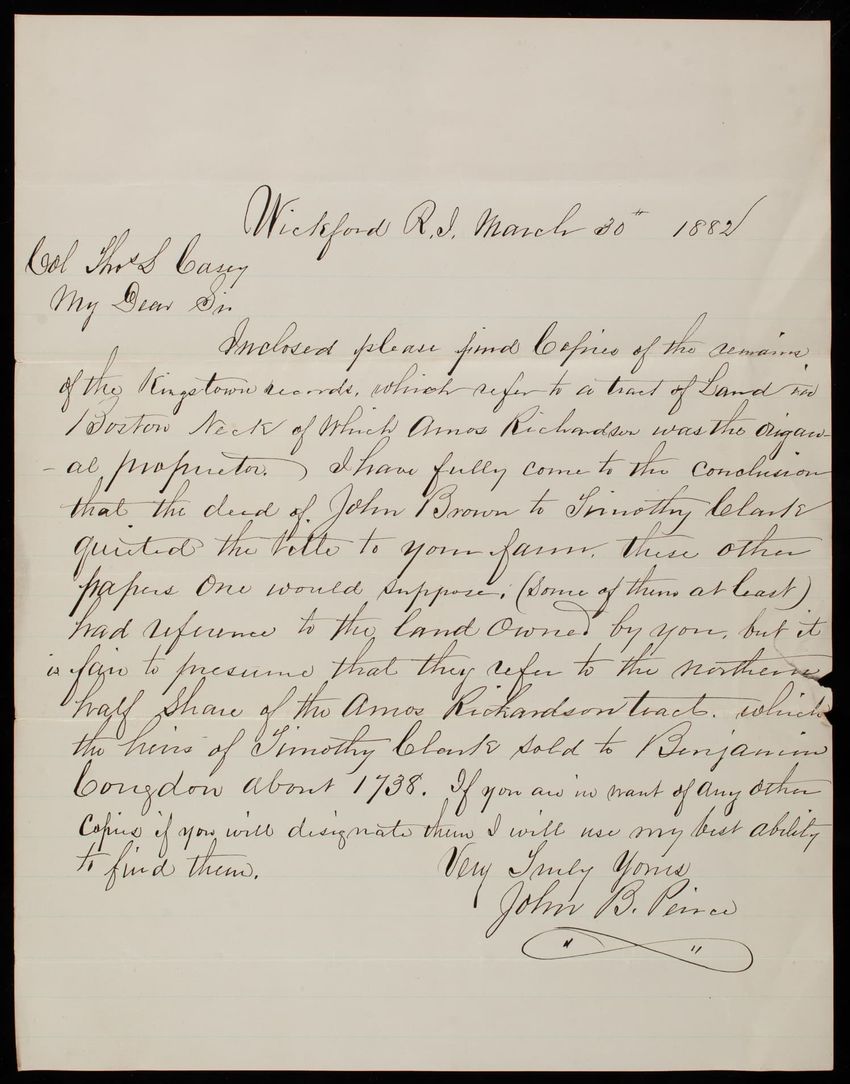 Wickford R.I. March 30" 1882
Col Thos L Casey
My Dear Sir
Inclosed please find Copies of the remains
of the Kingstown records, which refer to a tract of Land in
Boston Neck of Which Amos Richardson was the origin-
-al proprietor. I have fully come to the conclusion
that the deed of John Brown to Timothy Clark
quieted the title to your farm. these other
papers One would suppose, (some of them at least)
had reference to the land Owned by you, but it
is fair to presume that they refer to the northern
half Share of the Amos Richardson tract. which
the heirs of Timothy Clark sold to Benjamin
Congdon about 1738. If you are in want of any other
Copies if you will designate them I will use my best ability
to find them.
Very Truly Yours
John B. Peirce